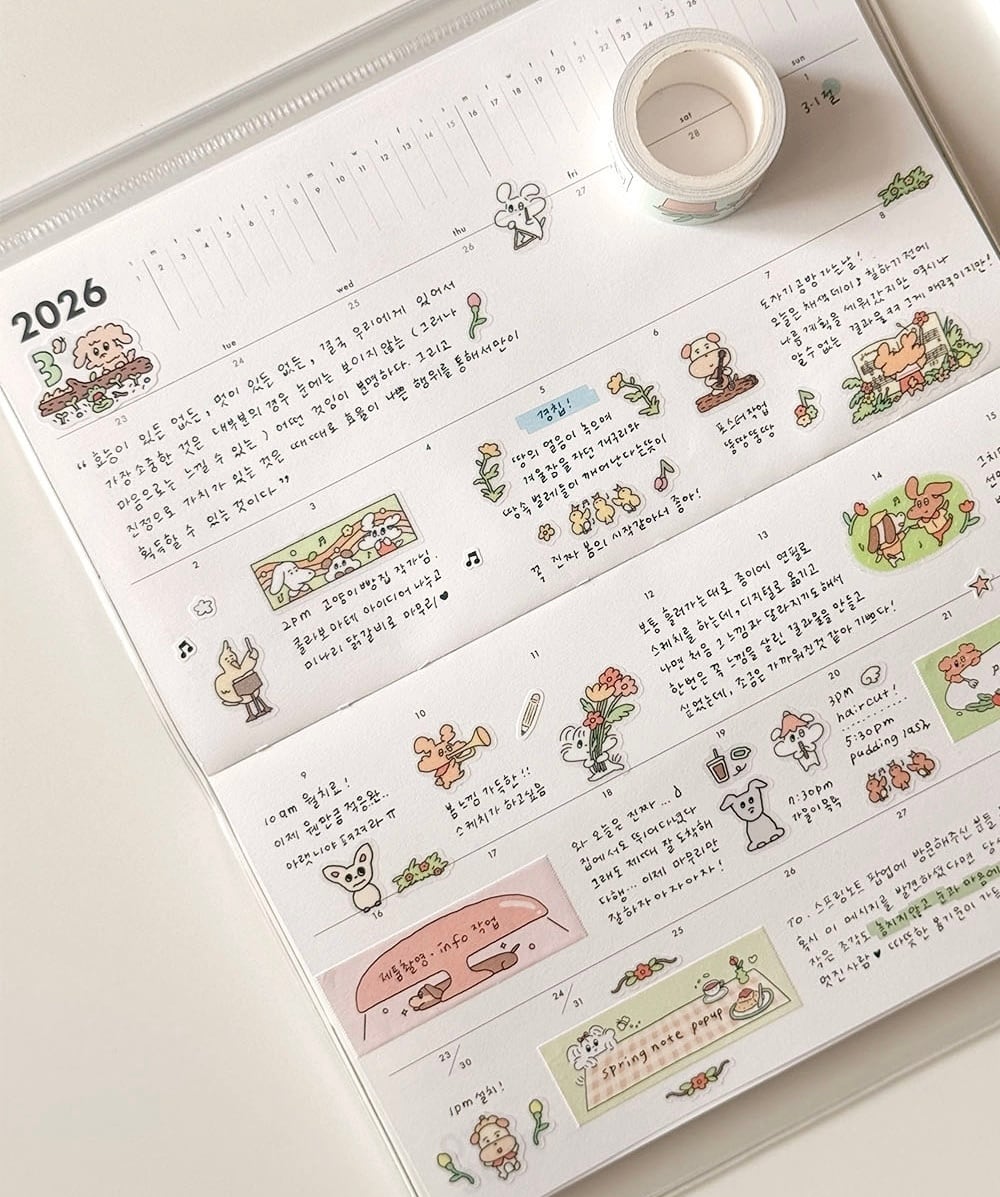 2026
3
23
tue
24
wed
25
thu
26
fri
27
sat
28
sun
1
3·1절
“ 효능이 있든 없든, 멋이 있든 없든, 결국 우리에게 있어서
가장 소중한 것은 대부분의 경우 눈에는 보이지 않는 (그러나
마음으로는 느낄 수 있는) 어떤 것임이 분명하다. 그리고
진정으로 가치가 있는 것은 때때로 효율이 나쁜 행위를 통해서만이
획득할 수 있는 것이다”
2
3
2pm 고양이빵집 작가님
콜라보 마테 아이디어 나누고
미나리 닭갈비로 마무리♥
4
5
경칩!
땅의 얼음이 녹으며
겨울잠을 자던 개구리와
땅속 벌레들이 깨어난다는 뜻이
꼭 진짜 봄의 시작같아서 좋아!
6
포스터작업
뚱땅뚱땅
7
도자기 공방 가는날!
오늘은 채색데이♪ 칠하기 전에
나름 계획을 세워갔지만 역시나
알 수 없는 결과물ㅋㅋ 그게 매력이지만!
8
9
10am 월치로!
이제 웬만큼 적응완..
10
11
봄 느낌 가득한!!
스케치가 하고싶음
12
13
보통 흘러가는대로 종이에 연필로
스케치를 하는데, 디지털로 옮기고
나면 처음 그 느낌과 달라지기도해서
한번은 꼭 느낌을 살린 결과물을 만들고
싶었는데, 조금은 가까워진것 같아 기쁘다!
14
15
16
17
제품촬영·info 작업
18
와 오늘은 진짜...
집에서도 뛰어다녔다
그래도 제때 잘 도착해
다행... 이제 마무리만
잘하자 아자아자!
19
20
3PM
haircut!
5:30pm
pudding lash
7:30pm
가을이목욕
21
23/30
1pm 설치!
24/31
spring note popup
25
26
27
TO. 스프링노트 팝업에 방문해주신 분들
혹시 이 메시지를 발견하셨다면 당신
작은 조각도 놓치지않고 눈과 마음에
멋진사람♥ 따뜻한 용기운이 가득